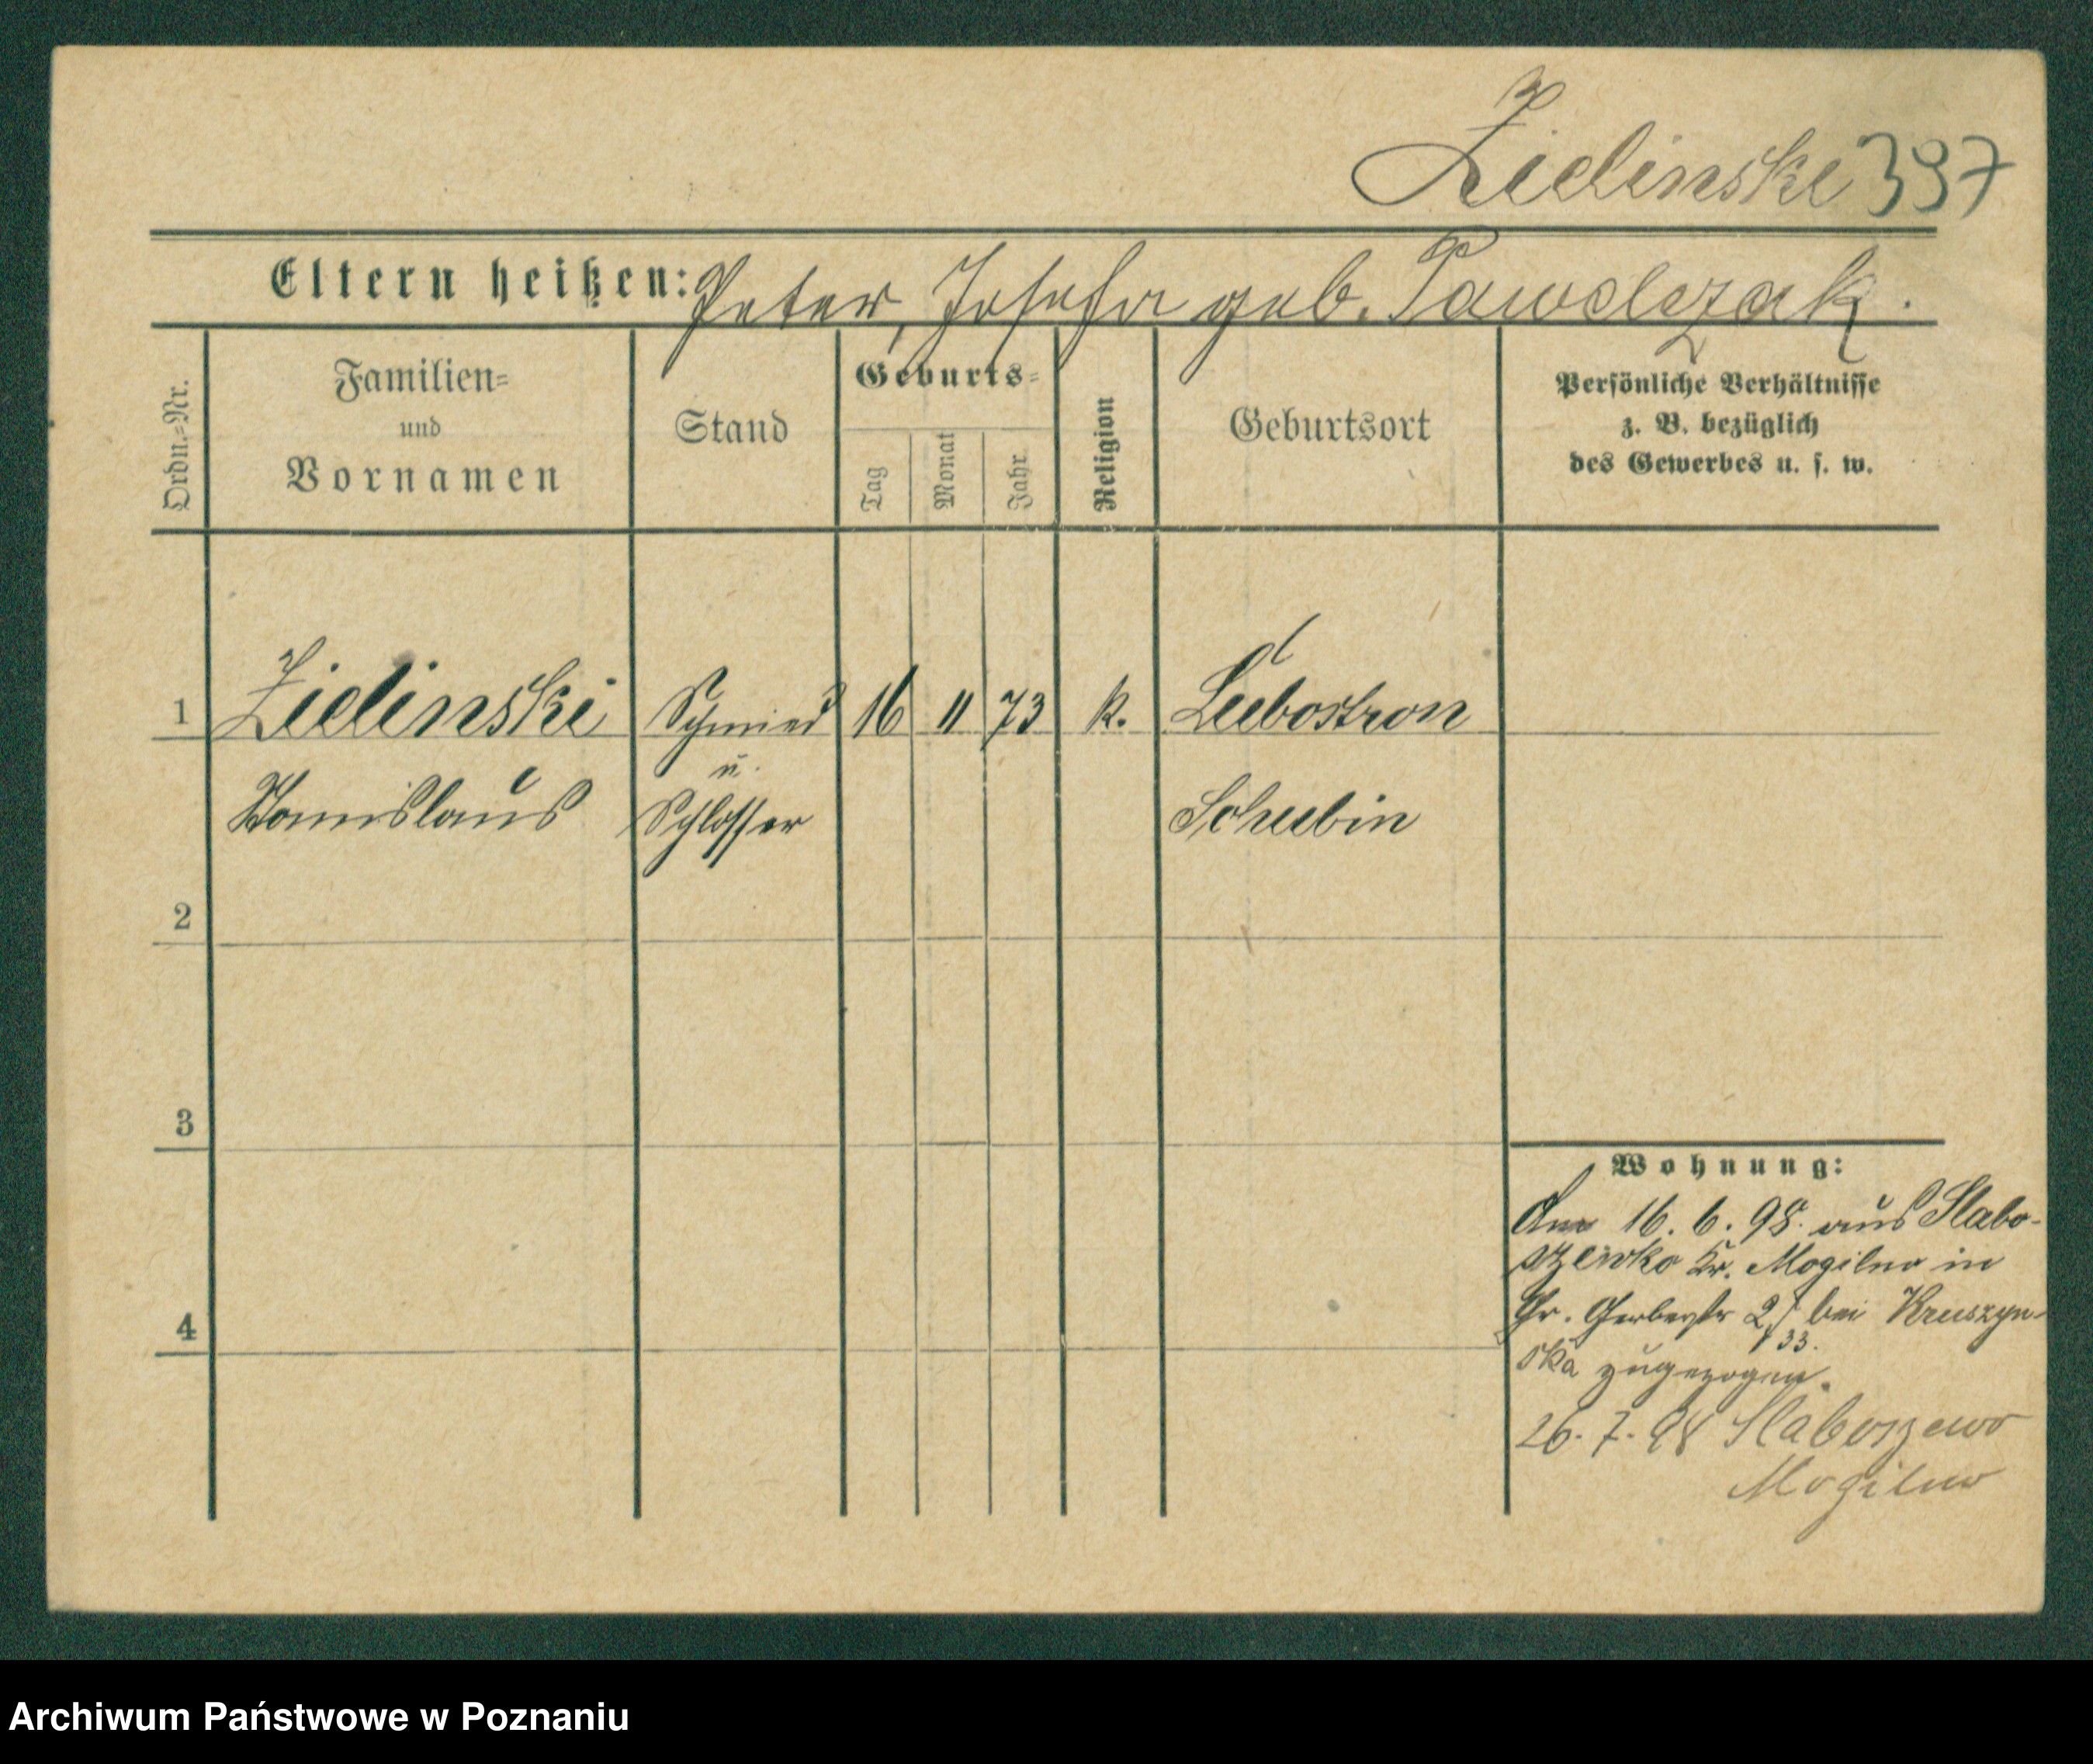 Zielinski 397
Eltern heißen: Peter, Josefa geb. Pawelczak.
Ordn.=Nr.
Familien=
und
Vornamen
Stand
Geburts=
Tag
Monat
Jahr
Religion
Geburtsort
Persönliche Verhältnisse
z. B. bezüglich
des Gewerbes u. s. w.
1 Zielinski Schmied 16 11 73 k. Lubostron
u.
Stanislaus Schlosser Schubin
2
3
4
Wohnung:
Am 16. 6. 98. aus Slabo-
szewko Kr. Mogilno in
Gr. Gerberstr bei Kruszyn-
33.
ska zugezogen.
26. 7. 98 Slaboszewo
Mogilno
Archiwum Państwowe w Poznaniu